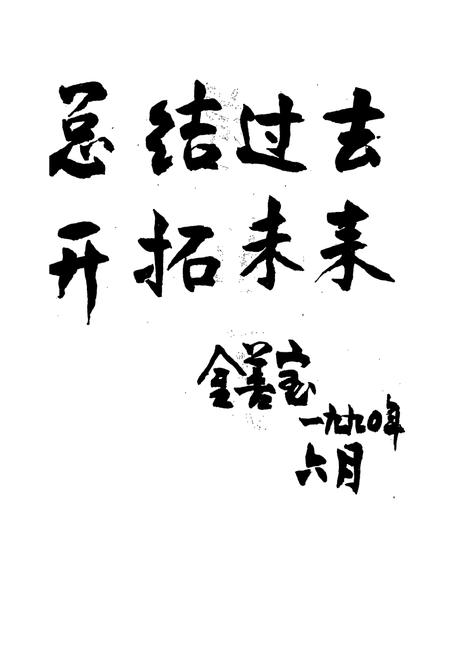 总结过去
开拓未来
金善宝
一九九〇年
六月